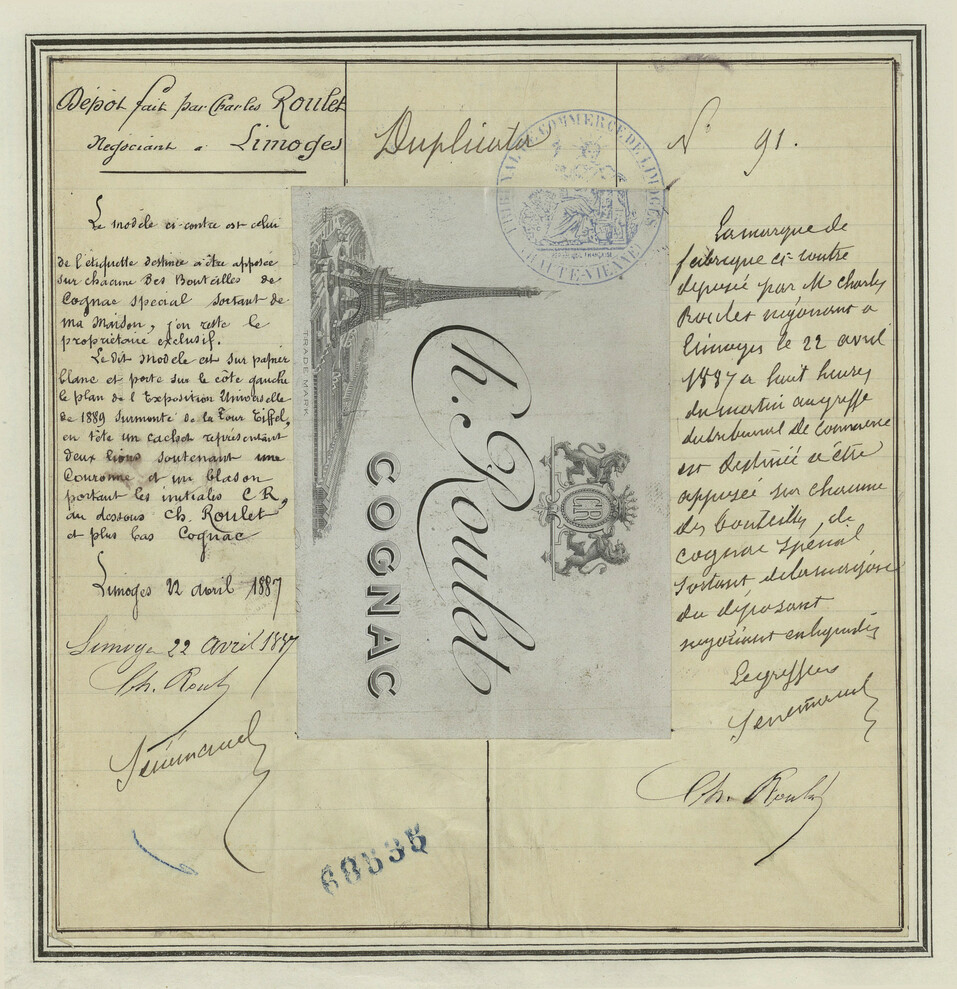 Dépôt fait par Charles Roulet
Négociant à Limoges
Duplicata
N° 91.
TRIBUNAL DE COMMERCE DE LIMOGES
RÉPUBLIQUE FRANÇAISE
HAUTE-VIENNE
Le modèle ci-contre est celui
de l'étiquette destinée a être apposée
sur chacune des Bouteilles de
Cognac spécial sortant de
ma Maison, j'en reste le
propriétaire exclusif.
Le dit modèle est sur papier
blanc et porte sur le côté gauche
le plan de l'Exposition Universelle
de 1889 surmonté de la Tour Eiffel,
en tête un cachet représentant
deux lions soutenant une
Couronne et un blason
portant les initiales C R,
au dessous Ch. Roulet
et plus bas Cognac
Limoges 22 avril 1887
Limoges 22 Avril 1887
Ch. Roulet
Sénémaud
60535
TRADE MARK
C.R
Ch. Roulet
COGNAC
La marque de
fabrique ci-contre
déposée par M Charles
Roulet négociant a
Limoges le 22 avril
1887 a huit heures
du matin au greffe
du tribunal de commerce
est destinée a être
apposée sur chacune
des bouteilles, de
cognac spécial
sortant de la maison
du déposant
négociant en liquides
Le greffier
Sénémaud
Ch. Roulet